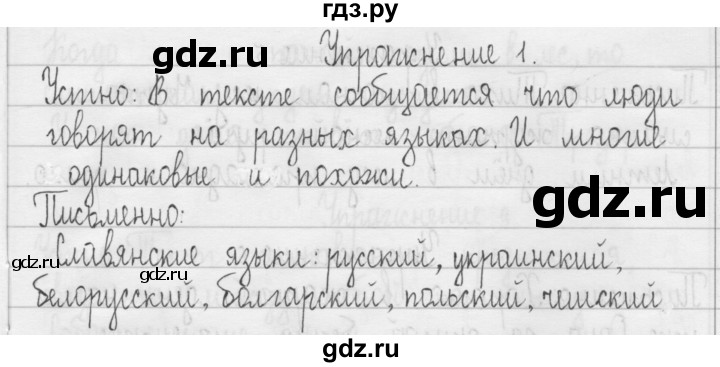 гдз.ру
gdz.ru
gdz.ru
Упражнение 1.
Устно: В тексте сообщается что люди
говорят на разных языках. И многие
одинаковые и похожи.
gdz.ru
Письменно:
gdz.ru
gdz.ru
Славянские языки: русский, украинский,
белорусский, болгарский, польский, чешский
gdz.ru